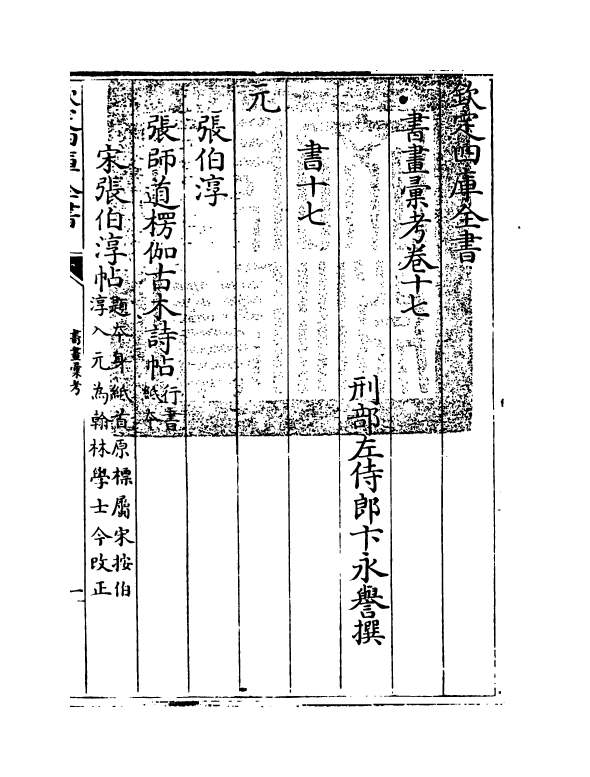 欽定四庫全書
書畫彙考卷十七
刑部左侍郎卞永譽撰
書十七
元
張伯淳
張師道楞伽古木詩帖行書紙本
宋張伯淳帖題本身紙首原標屬宋按伯
淳入元為翰林學士今改正
書畫彙考
一